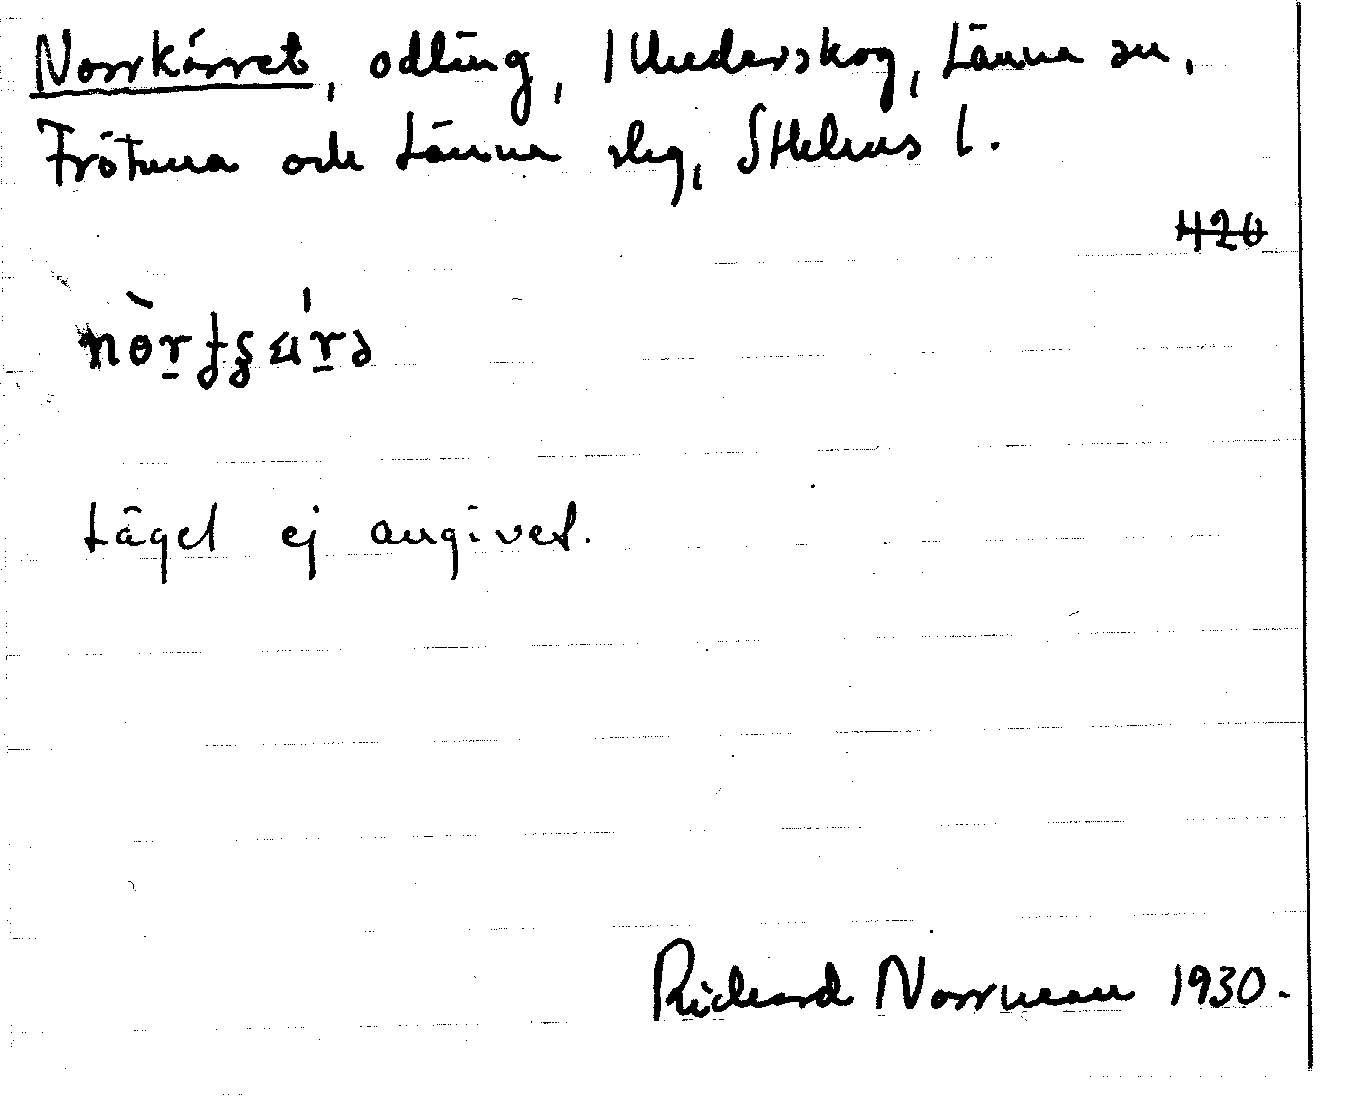 Norrkärret, odling, 1 Understkog, Länna sn,
Frötuna och Länna slg, Sthlms l.
420
Läget ej angivet.
Richard Norrman 1930.